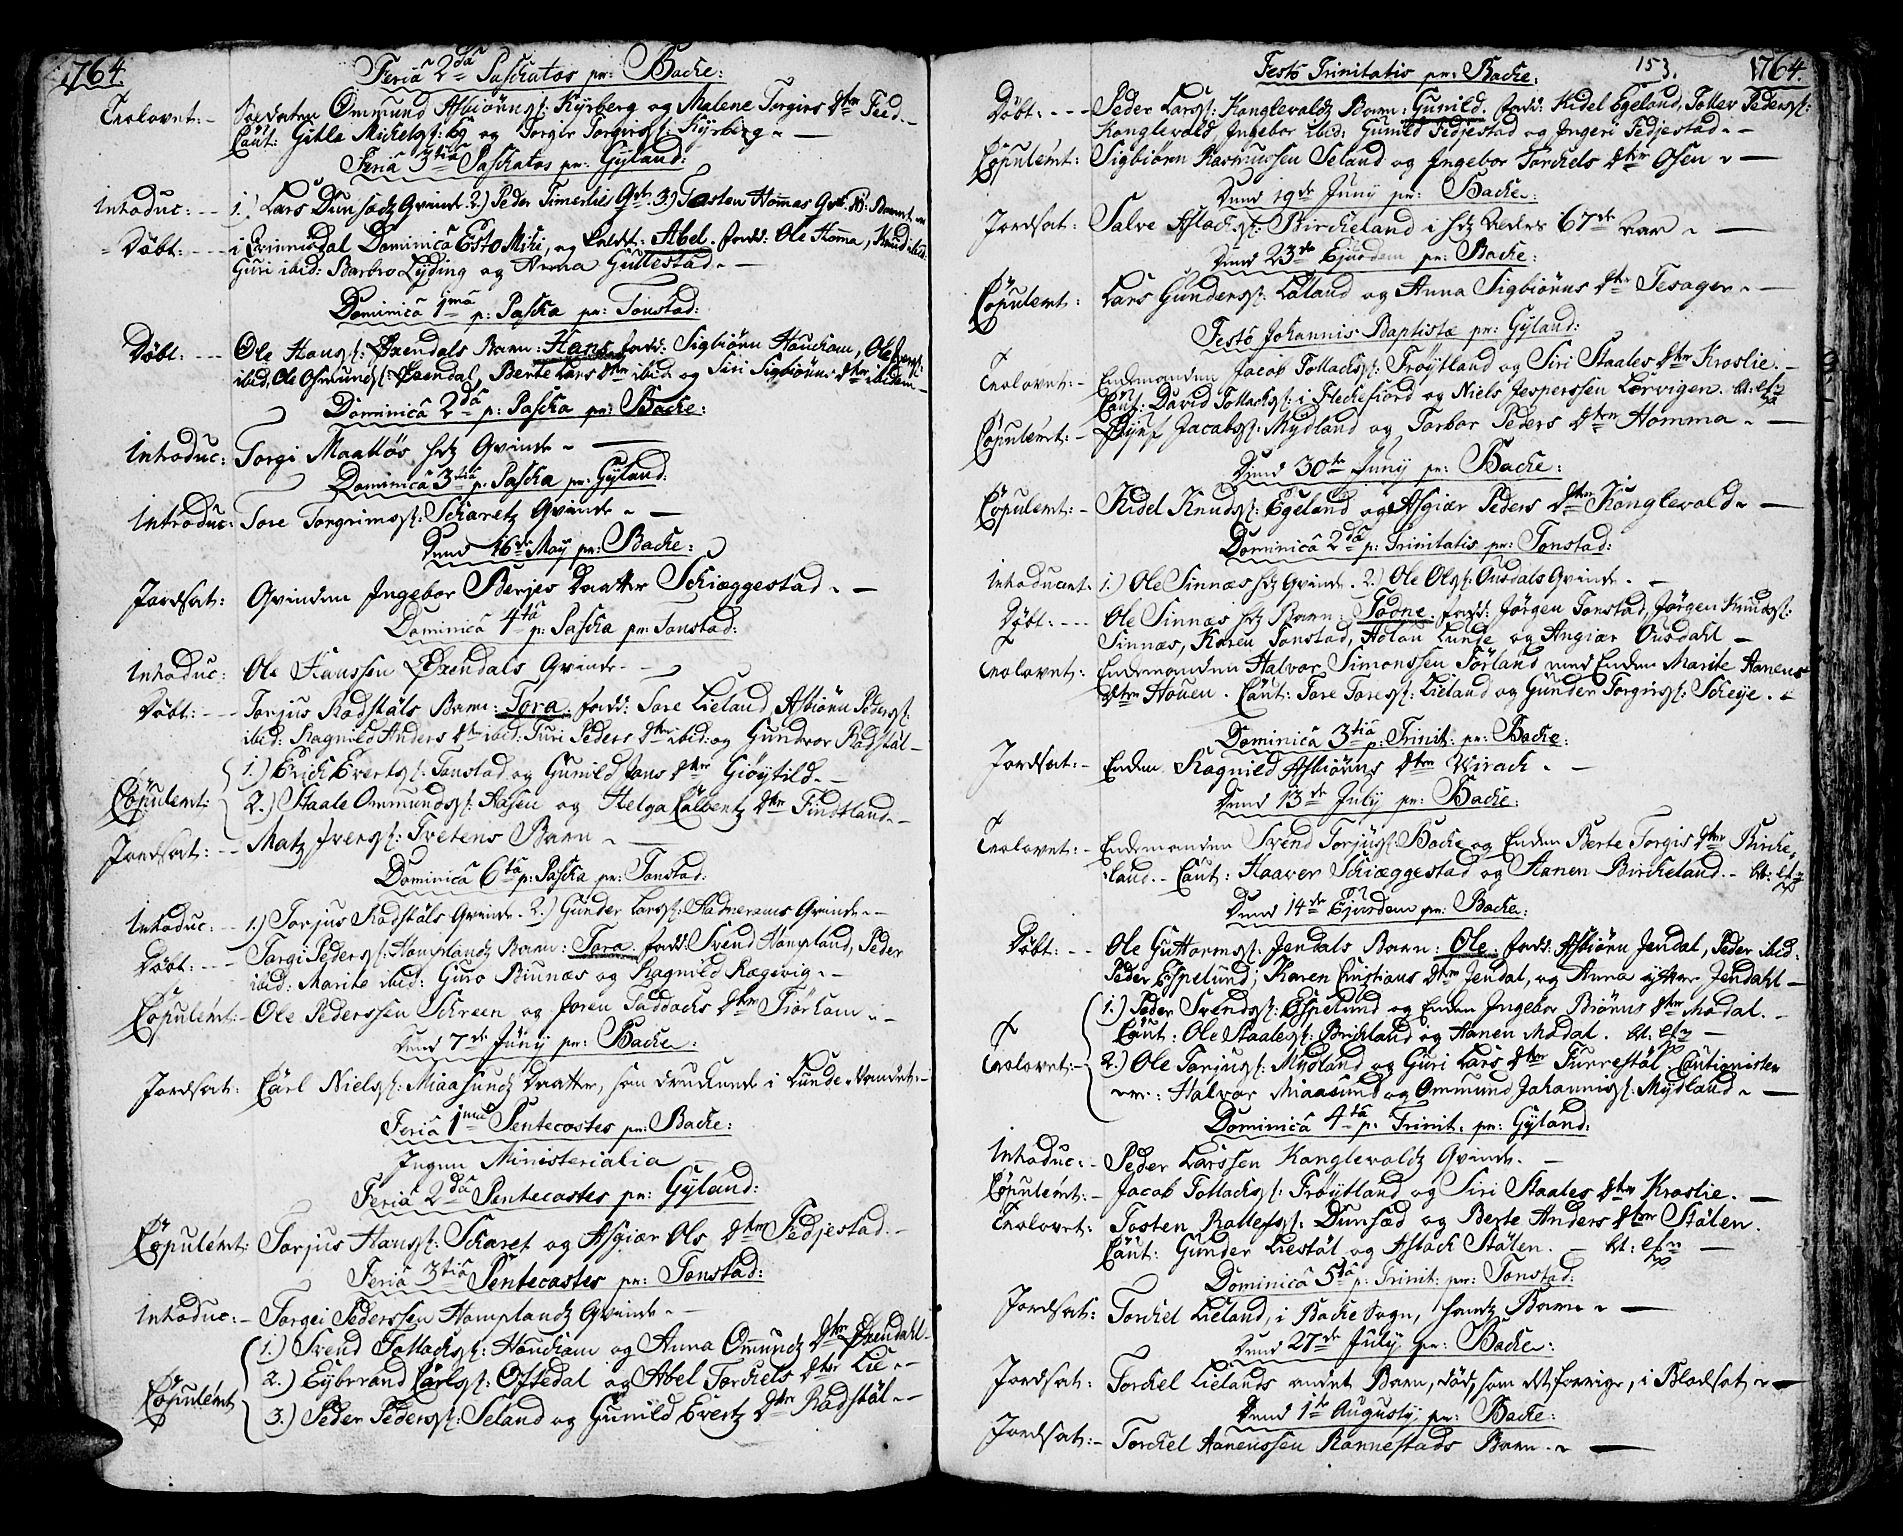 1764.
Feria 2da Paschatos pr: Backe:
Trolovet: - Soldaten Ommund Asbiørns: Kyrberg og Malene Torgirs dtr Feed. -
Caut: Gitle Michels: og Torgir Torgirs: Kyrberg -
Feria 3tia Paschatos pr: Gyland:
Introduc: - - 1.) Lars Dunsadz Qvinde. 2.) Peder Timerlies Qvd: 3.) Tosten Hommas Qvd:
Døbt: - - - i Dominica Esto Mihi, og kaldt: Abel. fadd: Ole Homma, Knud ibid:
Guri ibid: Barbro Lyding og Anna Gullestad. -
Dominica 1ma p: Pascha pr: Tonstad:
Døbt: - - - Ole Hans: Øxendals Barn: Hans fadd: Sigbiørn Houckom, Ole
ibid, Ole Osmunds: Øxendal, Berte Lars dtr ibid og Siri Sigbiørns dtr ibidem -
Dominica 2da p: Pascha pr: Backe:
Introduc: Torgi Maalløs hs Qvinde -
Dominica 3tia p: Pascha pr: Gyland:
Introduc: Tore Torgrims: Skaretz Qvinde -
Dend 16de May pr: Backe:
Jordsat: Qvinden Ingebor Berjes Daatter Schiæggestad. -
Dominica 4ta p: Pascha pr: Tonstad:
Introduc: Ole Hanssen Øxendals Qvinde. -
Døbt: - - - Torjus Rødstøls Barn: Tora. fadd: Tore Lieland, Asbiørn Peders:
ibid: Ragnild Anders dtr ibid: Turi Peders dtr ibid: og Gundvor Rødstøl -
1.) Erich Everts: Tonstad og Gunild Jons dtr Giøytild. -
Copuleret: 2.) Staale Ommunds: Aasen og Helga dtr Findtland -
Jordsat: - - Matz Ivers: Tvetens Barn -
Dominica 6ta p: Pascha pr: Tonstad:
Introduc: - 1.) Torjus Rødstøls Qvinde. 2.) Gunder Lars: Hadnerams Qvinde -
Døbt: - - - Torgi Peders: Homplandz Barn: Tora. fadd: Svend Hompland, Peder
ibid: Marite ibid: Guro Biunæs og Ragnild Røgevig -
Copuleret: - Ole Pederssen Schreen og Joren Taddachs dtr Fiørkom -
Dend 7de Junij pr: Backe:
Jordsat: Carl Niels: Miaasundz Daatter, som druknede i Lunde Vandet -
Feria 1ma Pentecostes pr: Backe:
Ingen Ministerialia
Feria 2da Pentecostes pr: Gyland:
Copuleret: Torjus Hans: Skaret og Asgiær Ols dtr Fedjestad. -
Feria 3tia Pentecostes pr: Tonstad:
Introduc: - Torgei Pederssen Homplandz Qvinde -
1.) Svend Tollachs: Houckom og Anna Ommundz dtr Øxendahl -
Copuleret 2.) Eybrand Carls: Oftedal og Abel Torckels dtr Lie -
3.) Peder Peders: Seland og Gunild Evertz dtr Rødstøl -
Festo Trinitatis pr: Backe: 153. 1764.
Døbt: - - - Peder Lars: Konglevoldz Barn: Gunild. fadd: Kidel Egeland, Tollev Peders:
Konglevold, Ingebor ibid: Gunild Fedjestad og Ingeri Fedjestad -
Copuleret: Sigbiørn Rasmussen Seland og Ingebor Torckels dtr Osen -
Dend 19de Junij pr: Backe:
Jordsat: Salve Aslachs: Birckeland i hs Alders 67de Aar -
Dend 23de Ejusdem pr: Backe:
Copuleret: Lars Gunders: Loland og Anna Sigbiørns dtr Tesager -
Festo Johannis Baptistæ pr: Gyland:
Trolovet: - Enkemanden Jacob Tollachs: Frøytland og Siri Staales dtr Kroslie. -
Caut: David Tollachs: i Fleckefiord og Niels Jesperssen Lervigen.
Copuleret: - Jacobs: Mydland og Torbor Peders dtr Homma -
Dend 30te Junij pr: Backe:
Copuleret: - Kidel Knuds: Egeland og Asgiær Peders dtr Konglevold -
Dominica 2da p: Trinitatis pr: Tonstad:
Introduceret: 1.) Ole Sinnæs hs Qvinde. 2.) Ole Ols: Ousdals Qvinde. -
Døbt: - - - Ole Sinnæs hs Barn: Tone. fadd: Jørgen Tonstad, Jørgen Knuds:
Sinnæs, Karen Tonstad, Lunde og Angiær Ousdahl -
Trolovet: Enkemanden Halvor Simonssen Førland med Enken Marite Aanens
dtr Houen. Caut: Tore Tores: Lieland og Gunder Torgirs: Skeije. -
Dominica 3tia p: Trinit: pr: Backe:
Jordsat: - Enken Ragnild Asbiørns dtr Virack. -
Dend 13de July pr: Backe:
Trolovet: - Enkemanden Svend Torjus: Backe og Enken Berte Torgis dtr Bircke,
land. - Caut: Haaver Schiæggestad og Aanen Birckeland. -
Dend 14de Ejusdem pr: Backe:
Døbt: - - Ole Guttorms: Jendals Barn: Ole. fadd: Asbiørn Jendal, Peder ibid:
Peder Espelund, Karen Christians dtr Jendal, og Anna Jendahl -
1.) Peder Svends: Espelund og Enken Ingebor Biørns dtr Modal. -
Caut: Ole Staales: Birckland og Aanen Modal. -
Trolovet: - 2.) Ole Torjus: Mydland og Guri Lars dtr Furrestøl. Cautionister
Halvor Miaasund og Ommund Johannis: Mydland -
Dominica 4ta p: Trinit. pr: Gyland:
Introduc: - Peder Larssen Konglevoldz Qvinde. -
Copuleret: - Jacob Tollachs: Frøytland og Siri Staales dtr Kroslie. -
Trolovet: Tosten Rallefs: Dunsad og Berte Anders dtr Stølen.
Caut: Gunder Liestøl og Aslack Stølen. -
Dominica 5ta p: Trinit: pr: Tonstad:
Jordsat: Torckel Lieland, i Backe Sogn, hanss Barn -
Dend 27de July pr: Backe:
Jordsat: Torckel Lielands andet Barn, død, som det forrige, i Blodsot -
Dend 1te Augustij pr: Backe:
Jordsat: - Torckel Aanenssen Rannestads Barn -